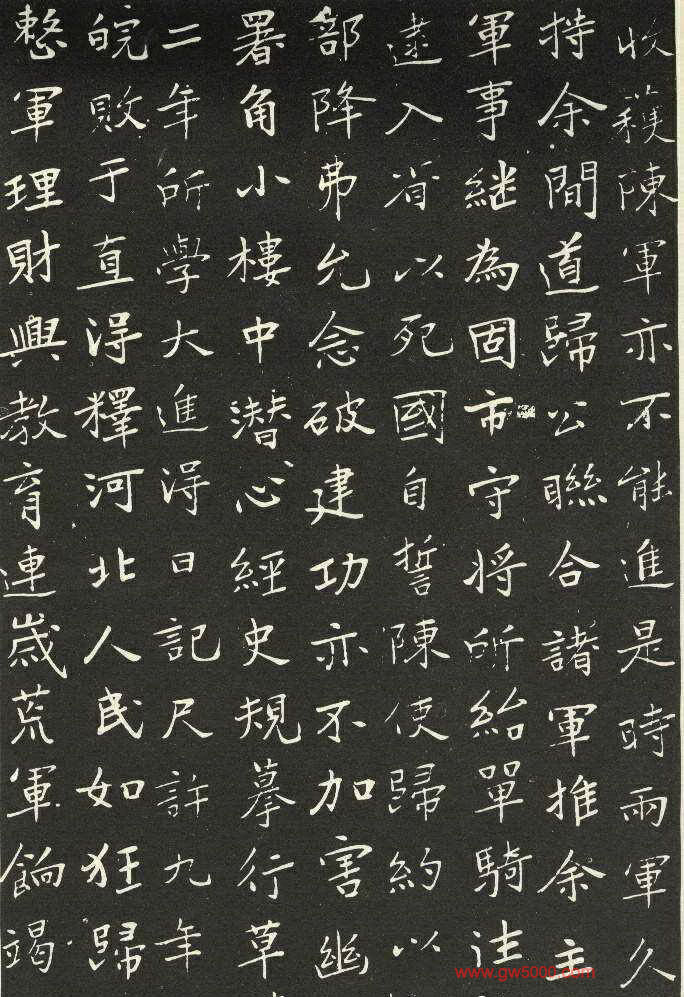 收穫陳軍亦不能進是時兩軍久
持余間道歸公聯合諸軍推余主
軍事繼為固市守將所紿單騎往
逮入省以死國自誓陳使歸約以
部降弗允念破建功亦不加害幽
署角小樓中潛心經史規摹行草
二年所學大進淂日記尺許九年
皖敗于直淂釋河北人民如狂歸
整軍理財興教育連歲荒軍餉竭
www.gw5000.com